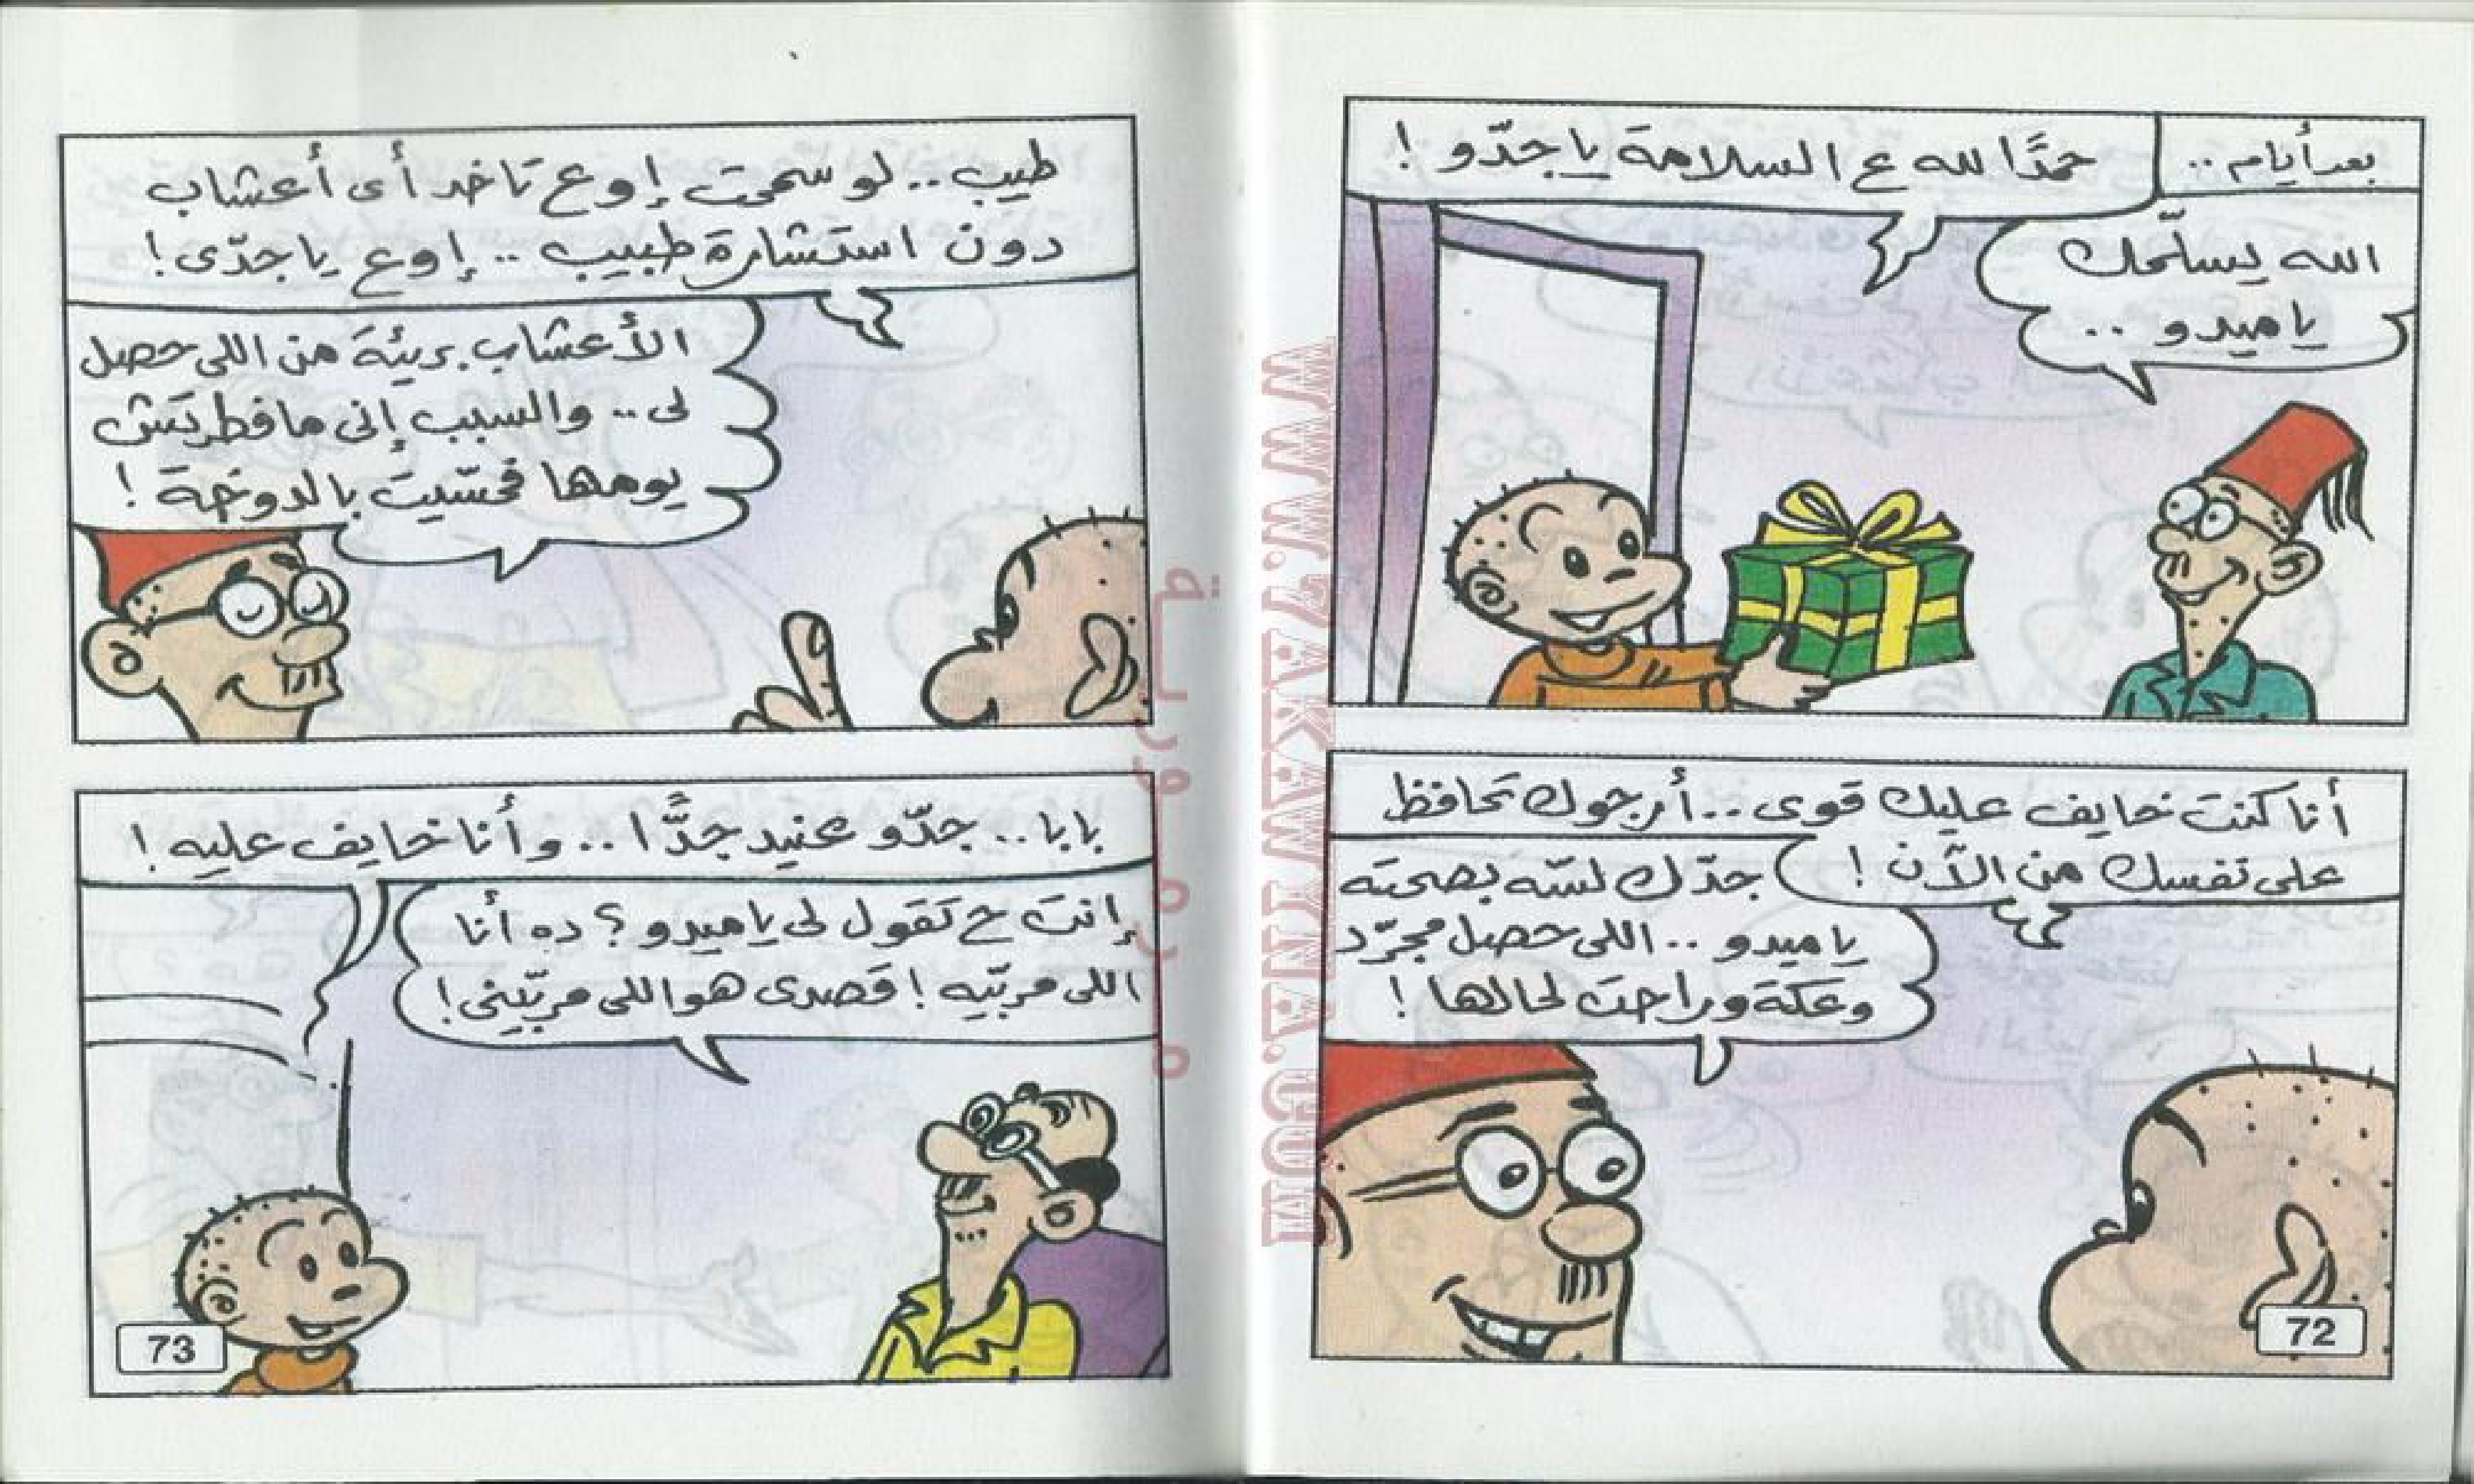 بعد أيام ..
حمدًا لله ع السلامة يا جدّو !
الله يسلّمك
يا ميدو ..
أنا كنت خايف عليك قوى .. أرجوك تحافظ
على نفسك من الآن !
جدّك لسّه بصحته
يا ميدو .. اللى حصل مجرّد
وعكة وراحت لحالها !
72
طيب .. لو سمحت إوع تاخد أى أعشاب
دون استشارة طبيب .. إوع يا جدّى !
الأعشاب بريئة من اللى حصل
لى .. والسبب إنى ما فطرتش
يومها فحسّيت بالدوخة !
بابا .. جدّو عنيد جدًّا .. وأنا خايف عليه !
إنت ح تقول لى يا ميدو ؟ ده أنا
اللى مربّيه ! قصدى هو اللى مربّينى !
73
WWW.ZAKAWINA.COM